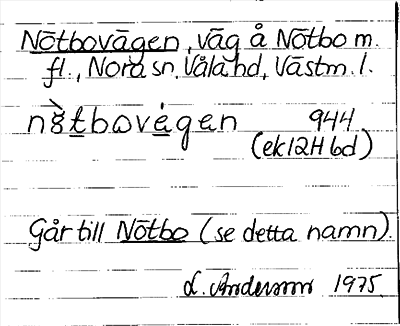 Nötbovägen, väg å Nötbo m.
fl., Nora sn. Våla hd, Västm. l.
nö̀tbové̱gen 944
(ek 12H 6d)
Går till Nötbo (se detta namn).
L. Andersson 1975